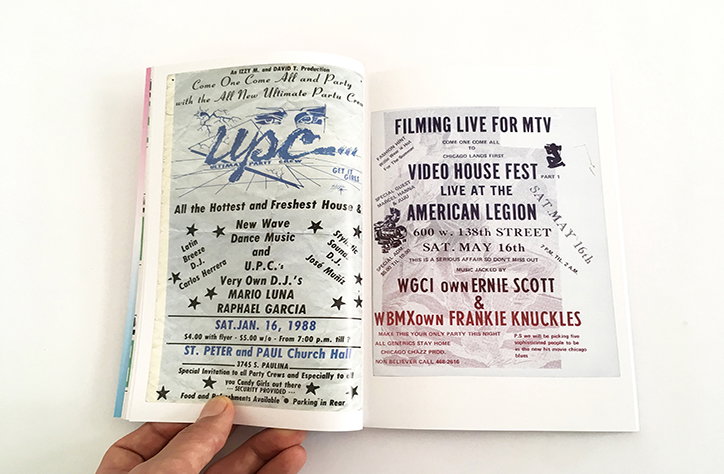 An IZZY M. and DAVID T. Production
Come One Come All and Party
with the All New Ultimate Party Crew
upc
ULTIMATE PARTY CREW
GET IT
GIRLS
All the Hottest and Freshest House &
New Wave
Dance Music
and
U.P.C.'s
Very Own D.J.'s
MARIO LUNA
RAPHAEL GARCIA
Latin
Breeze
D.J.
Carlos Herrera
D.J.
José Muñiz
SAT. JAN. 16, 1988
$4.00 with flyer - $5.00 w/o - From 7:00 p.m. till ?
ST. PETER and PAUL Church Hall
3745 S. PAULINA
Special Invitation to all Party Crews and Especially to
you Candy Girls out there
--- SECURITY PROVIDED ---
Food and Refreshments Available • Parking in Rear
FILMING LIVE FOR MTV
FASHION MINT
For The Summer
COME ONE COME ALL
TO
CHICAGO LANDS FIRST
VIDEO HOUSE FEST
PART 1
LIVE AT THE
SPECIAL GUEST
& JUJU
AMERICAN LEGION
600 w. 138th STREET
SAT. MAY 16th
SAT. MAY 16th
7 P.M. TIL 2 A.M.
THIS IS A SERIOUS AFFAIR SO DON'T MISS OUT
MUSIC JACKED BY
WGCI own ERNIE SCOTT
&
WBMX own FRANKIE KNUCKLES
MAKE THIS YOUR ONLY PARTY THIS NIGHT
ALL GENERICS STAY HOME
CHICAGO CHAZZ PROD.
NON BELIEVER CALL 468-2616
P.S we will be picking five
sophisticated people to be
as the new his movie chicago
blues